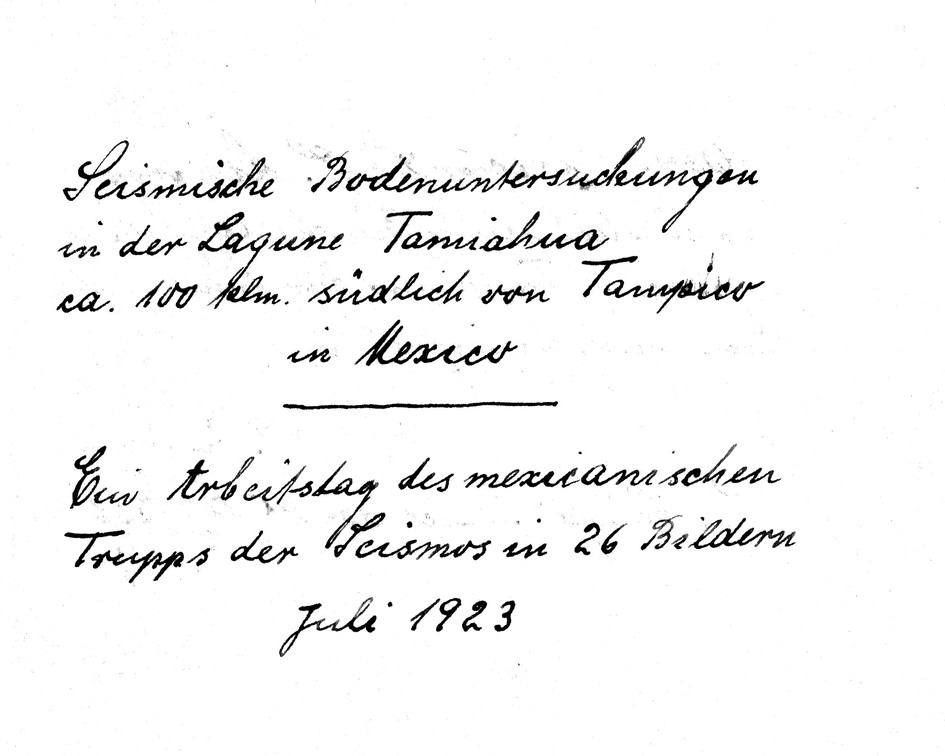 Seismische Bodenuntersuchungen
in der Lagune Tamiahua
ca. 100 klm. südlich von Tampico
in Mexico
Ein Arbeitstag des mexicanischen
Trupps der Seismos in 26 Bildern
Juli 1923